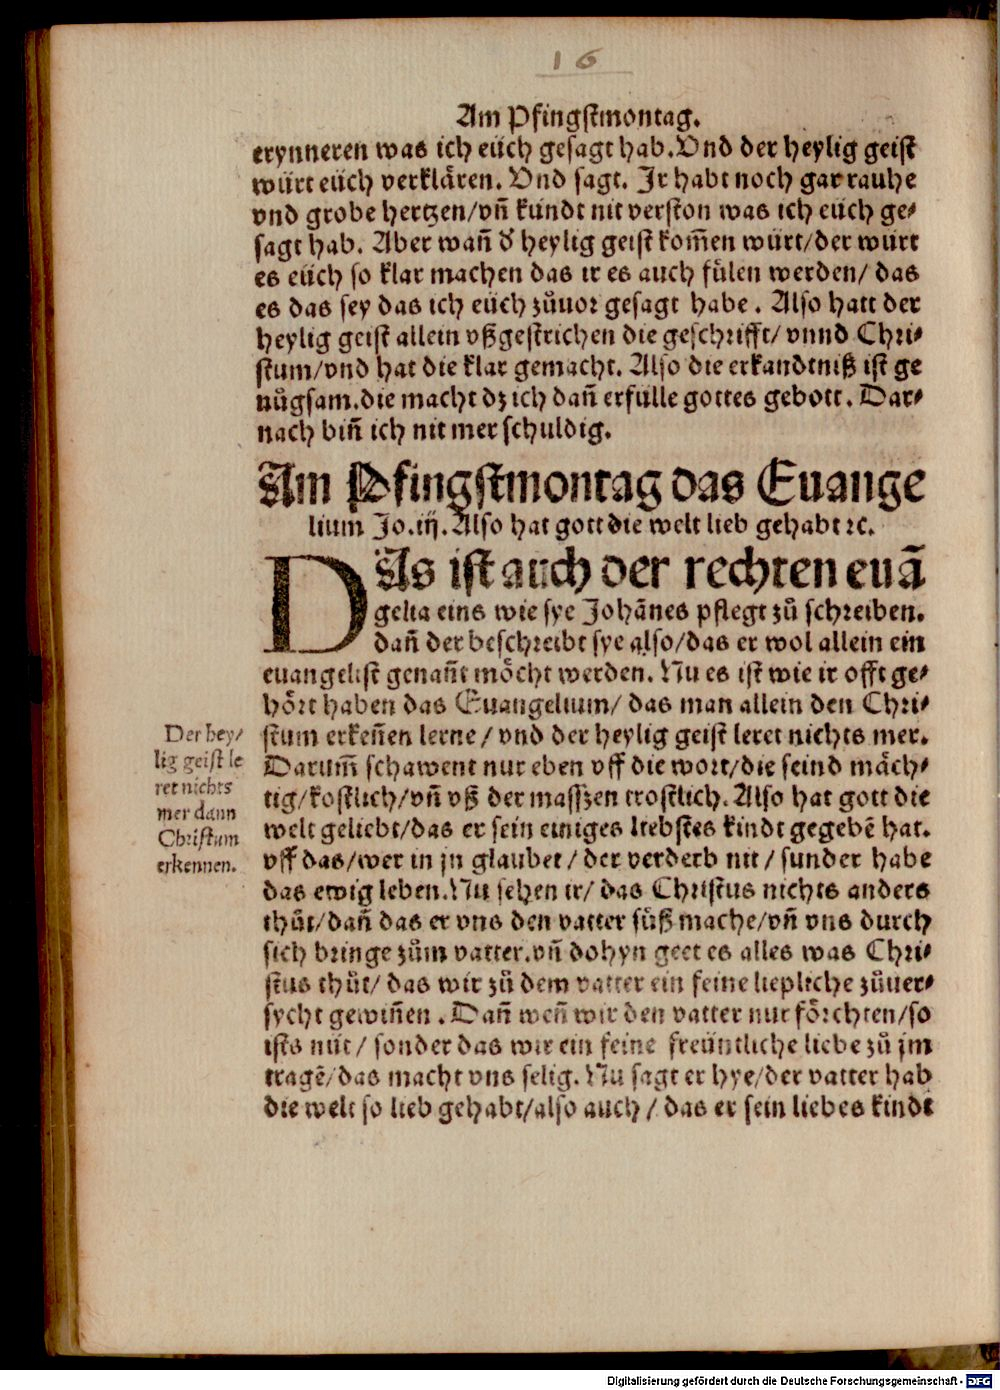 16
Am Pfingstmontag.
erynneren was ich eüch gesagt hab. Vnd der heylig geist
würt eüch verklären. Vnd sagt. Ir habt noch gar rauhe
vnd grobe hertzen/vñ kündt nit verston was ich eüch ge⸗
sagt hab. Aber wañ d̕ heylig geist kom̃en würt/der würt
es eüch so klar machen das ir es auch fülen werden/ das
es das sey das ich eüch zůuor gesagt habe. Also hatt der
heylig geist allein vßgestrichen die geschrifft/ vnnd Chri⸗
stum/vnd hat die klar gemacht. Also die erkandtniß ist ge
nůgsam. die macht dz ich dañ erfülle gottes gebott. Dar⸗
nach biñ ich nit mer schuldig.
Am Pfingstmontag das Euange
lium Jo.iij. Also hat gott die welt lieb gehabt ꝛc.
DAs ist auch der rechten euã
gelia eins wie sye Johãnes pflegt zů schreiben.
dañ der beschreibt sye also/das er wol allein ein
euangelist genañt möcht werden. Nu es ist wie ir offt ge⸗
hört haben das Euangelium/ das man allein den Chri⸗
stum erkeñen lerne/ vnd der heylig geist leret nichts mer.
Darum̃ schawent nur eben vff die wort/die seind mäch⸗
tig/kostlich/vñ vß der masszen trostlich. Also hat gott die
welt geliebt/das er sein einiges liebstes kindt gegebẽ hat.
vff das/wer in jn glaubet/ der verderb nit/ sunder habe
das ewig leben. Nu sehen ir/ das Christus nichts anders
thůt/dañ das er vns den vatter süß mache/vñ vns durch
sich bringe zům vatter. vñ dohyn geet es alles was Chri⸗
stus thůt/ das wir zů dem vatter ein feine liepliche zůuer⸗
sycht gewiñen. Dañ weñ wir den vatter nur förchten/so
ists nüt/ sonder das wir ein feine freüntliche liebe zů jm
tragẽ/das macht vns selig. Nu sagt er hye/der vatter hab
die welt so lieb gehabt/also auch/ das er sein liebes kindt
Der hey/
lig geist le
ret nichts
mer dann
Christum
erkennen.
Digitalisierung gefördert durch die Deutsche Forschungsgemeinschaft - DFG